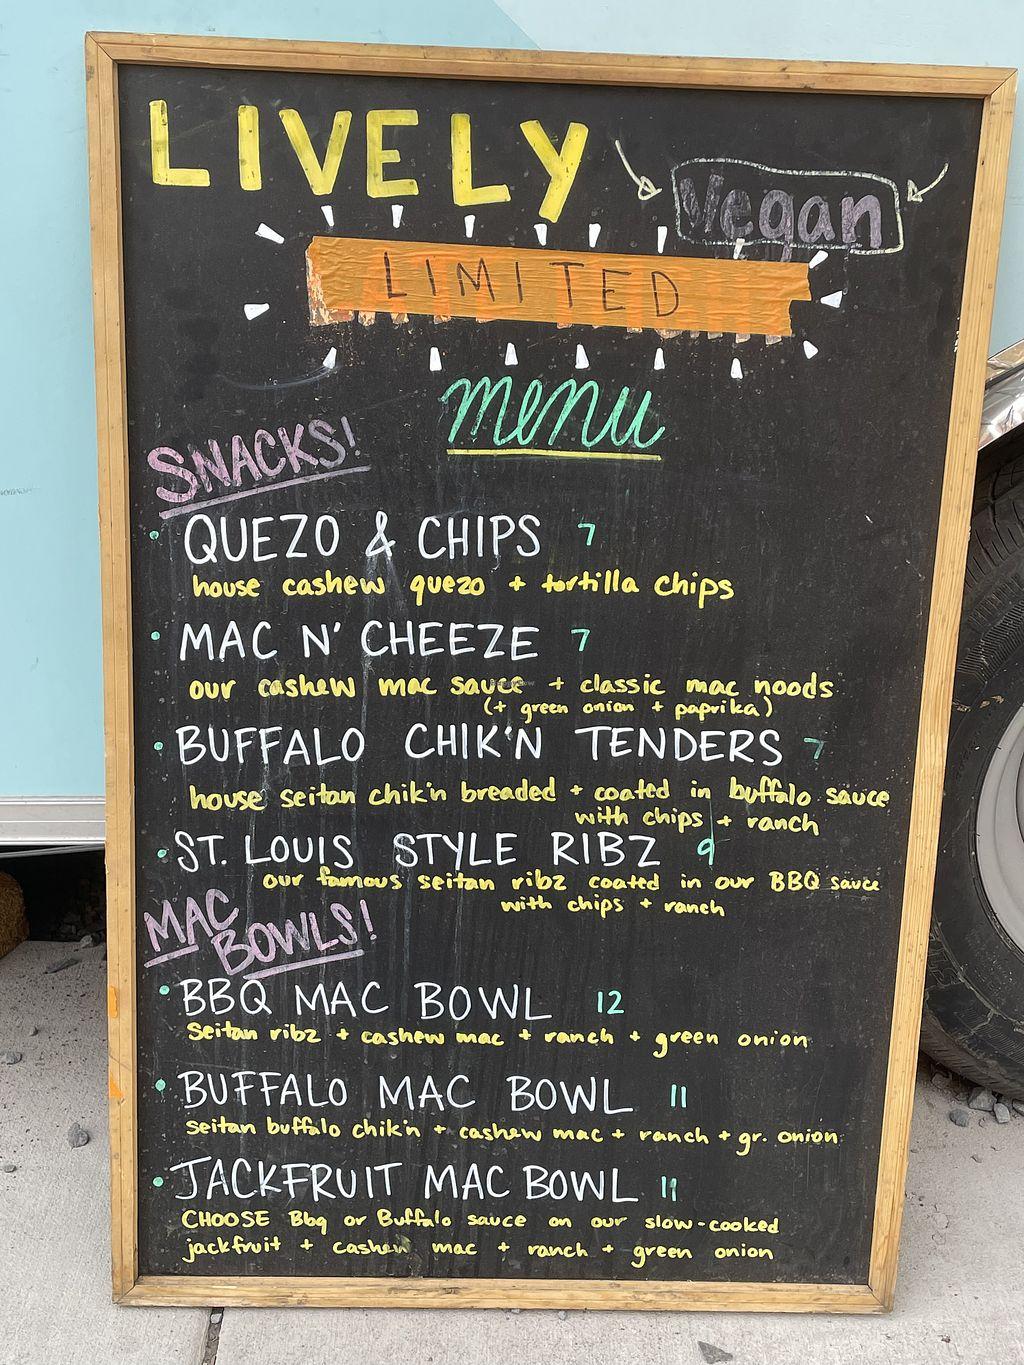 LIVELY
Vegan
LIMITED
menu
SNACKS!
• QUEZO & CHIPS 7
house cashew quezo + tortilla chips
• MAC N' CHEEZE 7
our cashew mac sauce + classic mac noods
(+ green onion + paprika)
• BUFFALO CHIK'N TENDERS 7
house seitan chik'n breaded + coated in buffalo sauce
with chips + ranch
• ST. LOUIS STYLE RIBZ 9
our famous seitan ribz coated in our BBQ sauce
with chips + ranch
MAC
BOWLS!
• BBQ MAC BOWL 12
Seitan ribz + cashew mac + ranch + green onion
• BUFFALO MAC BOWL 11
seitan buffalo chik'n + cashew mac + ranch + gr. onion
• JACKFRUIT MAC BOWL 11
CHOOSE Bbq or Buffalo sauce on our slow-cooked
jackfruit + cashew mac + ranch + green onion